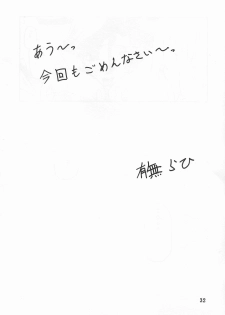 あぅ〜っ
今回もごめんなさい〜っ
有無らひ
32